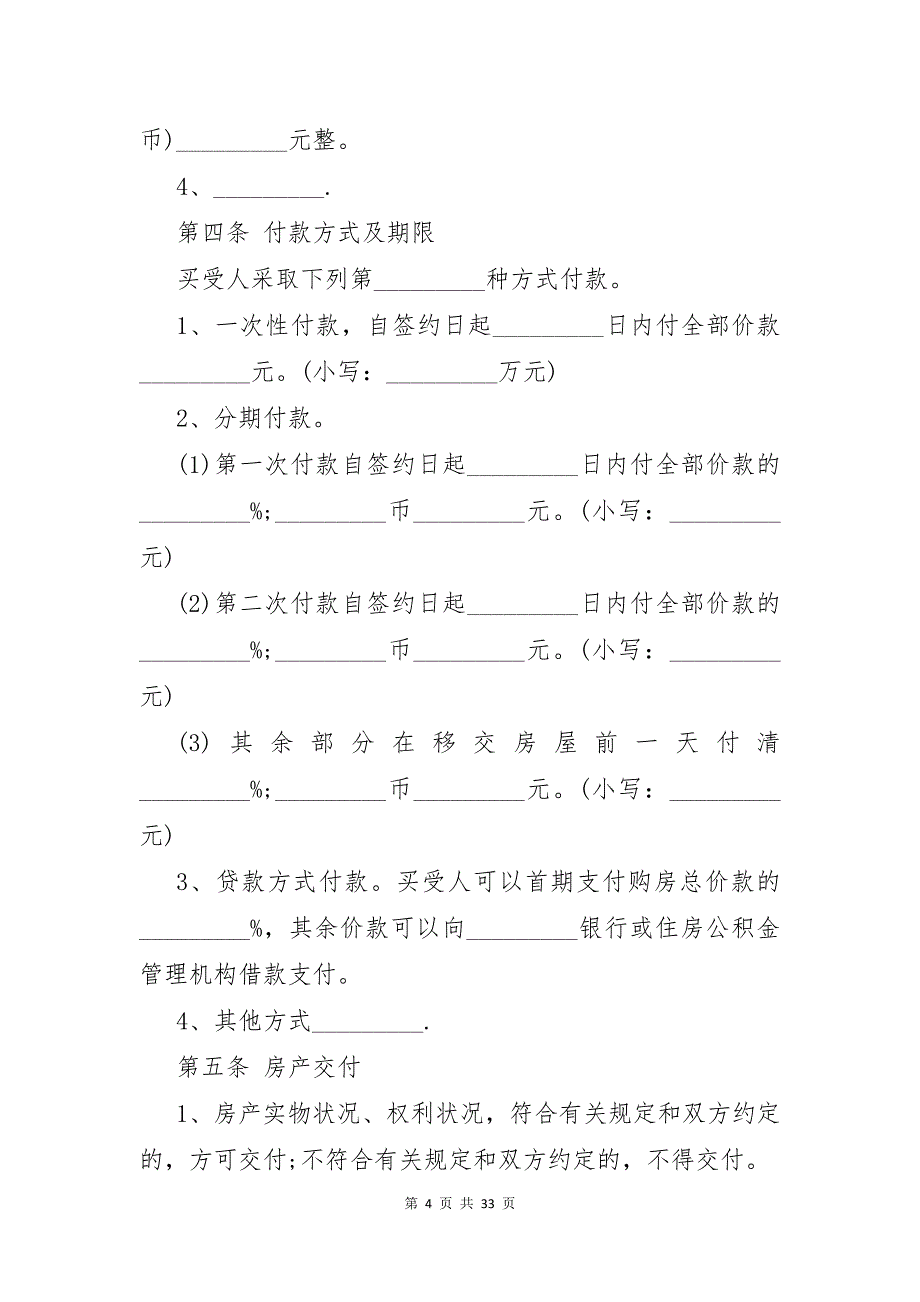 币)_________元整。
4、_________.
第四条 付款方式及期限
买受人采取下列第_________种方式付款。
1、一次性付款，自签约日起_________日内付全部价款
_________元。(小写：_________万元)
2、分期付款。
(1)第一次付款自签约日起_________日内付全部价款的
_________%;_________币_________元。(小写：_________
元)
(2)第二次付款自签约日起_________日内付全部价款的
_________%;_________币_________元。(小写：_________
元)
(3)其余部分在移交房屋前一天付清
_________%;_________币_________元。(小写：_________
元)
3、贷款方式付款。买受人可以首期支付购房总价款的
_________%，其余价款可以向_________银行或住房公积金
管理机构借款支付。
4、其他方式_________.
第五条 房产交付
1、房产实物状况、权利状况，符合有关规定和双方约定
的，方可交付;不符合有关规定和双方约定的，不得交付。
第 4 页 共 33 页